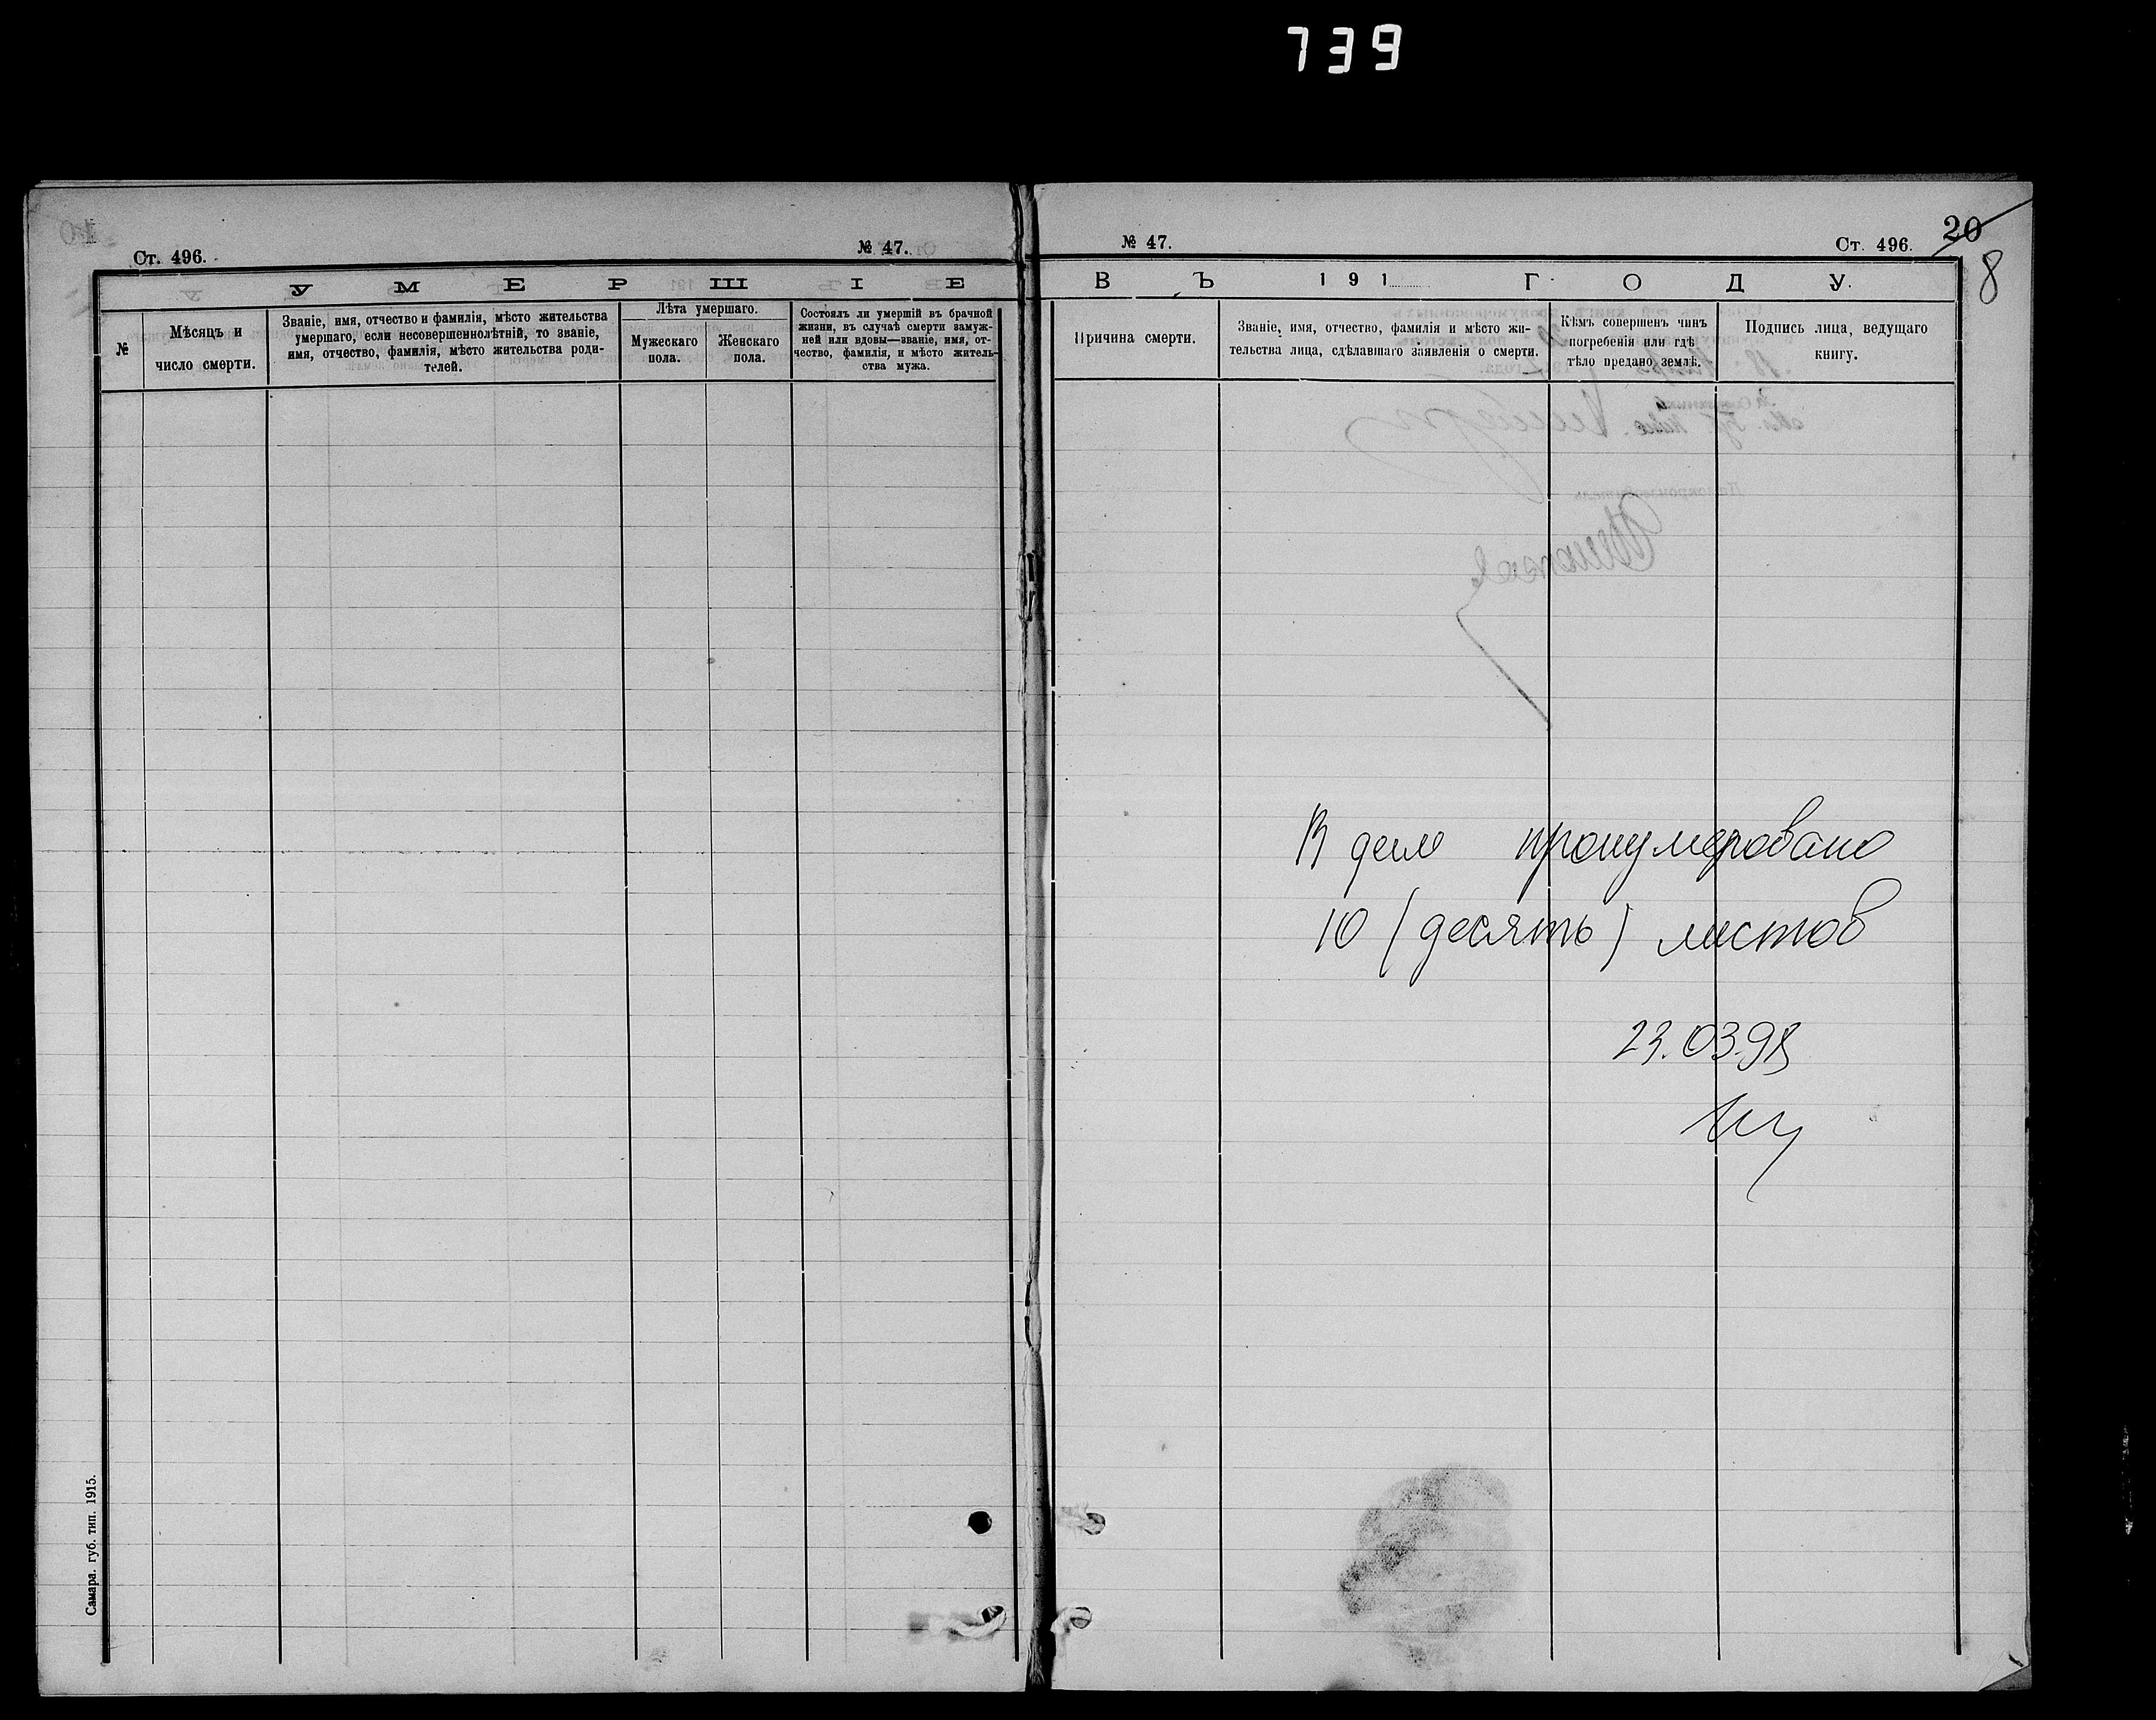 739
Ст. 496.
№ 47.
УМЕРШІЕ
№
Мѣсяцъ и
число смерти.
Званіе, имя, отчество и фамилія, мѣсто жительства
умершаго, если несовершеннолѣтній, то званіе,
имя, отчество, фамилія, мѣсто жительства роди-
телей.
Лѣта умершаго.
Мужескаго
пола.
Женскаго
пола.
Состоялъ ли умершій въ брачной
жизни, въ случаѣ смерти замуж-
ней или вдовы—званіе, имя, от-
чество, фамилія, и мѣсто житель-
ства мужа.
Самара. губ. тип. 1915.
№ 47.
Ст. 496.
20
8
ВЪ 191 ГОДУ.
Причина смерти.
Званіе, имя, отчество, фамилія и мѣсто жи-
тельства лица, сдѣлавшаго заявленія о смерти.
Кѣмъ совершенъ чинъ
погребенія или гдѣ
тѣло предано землѣ.
Подпись лица, ведущаго
книгу.
В деле пронумеровано
10 (десять) листов
23.03.98